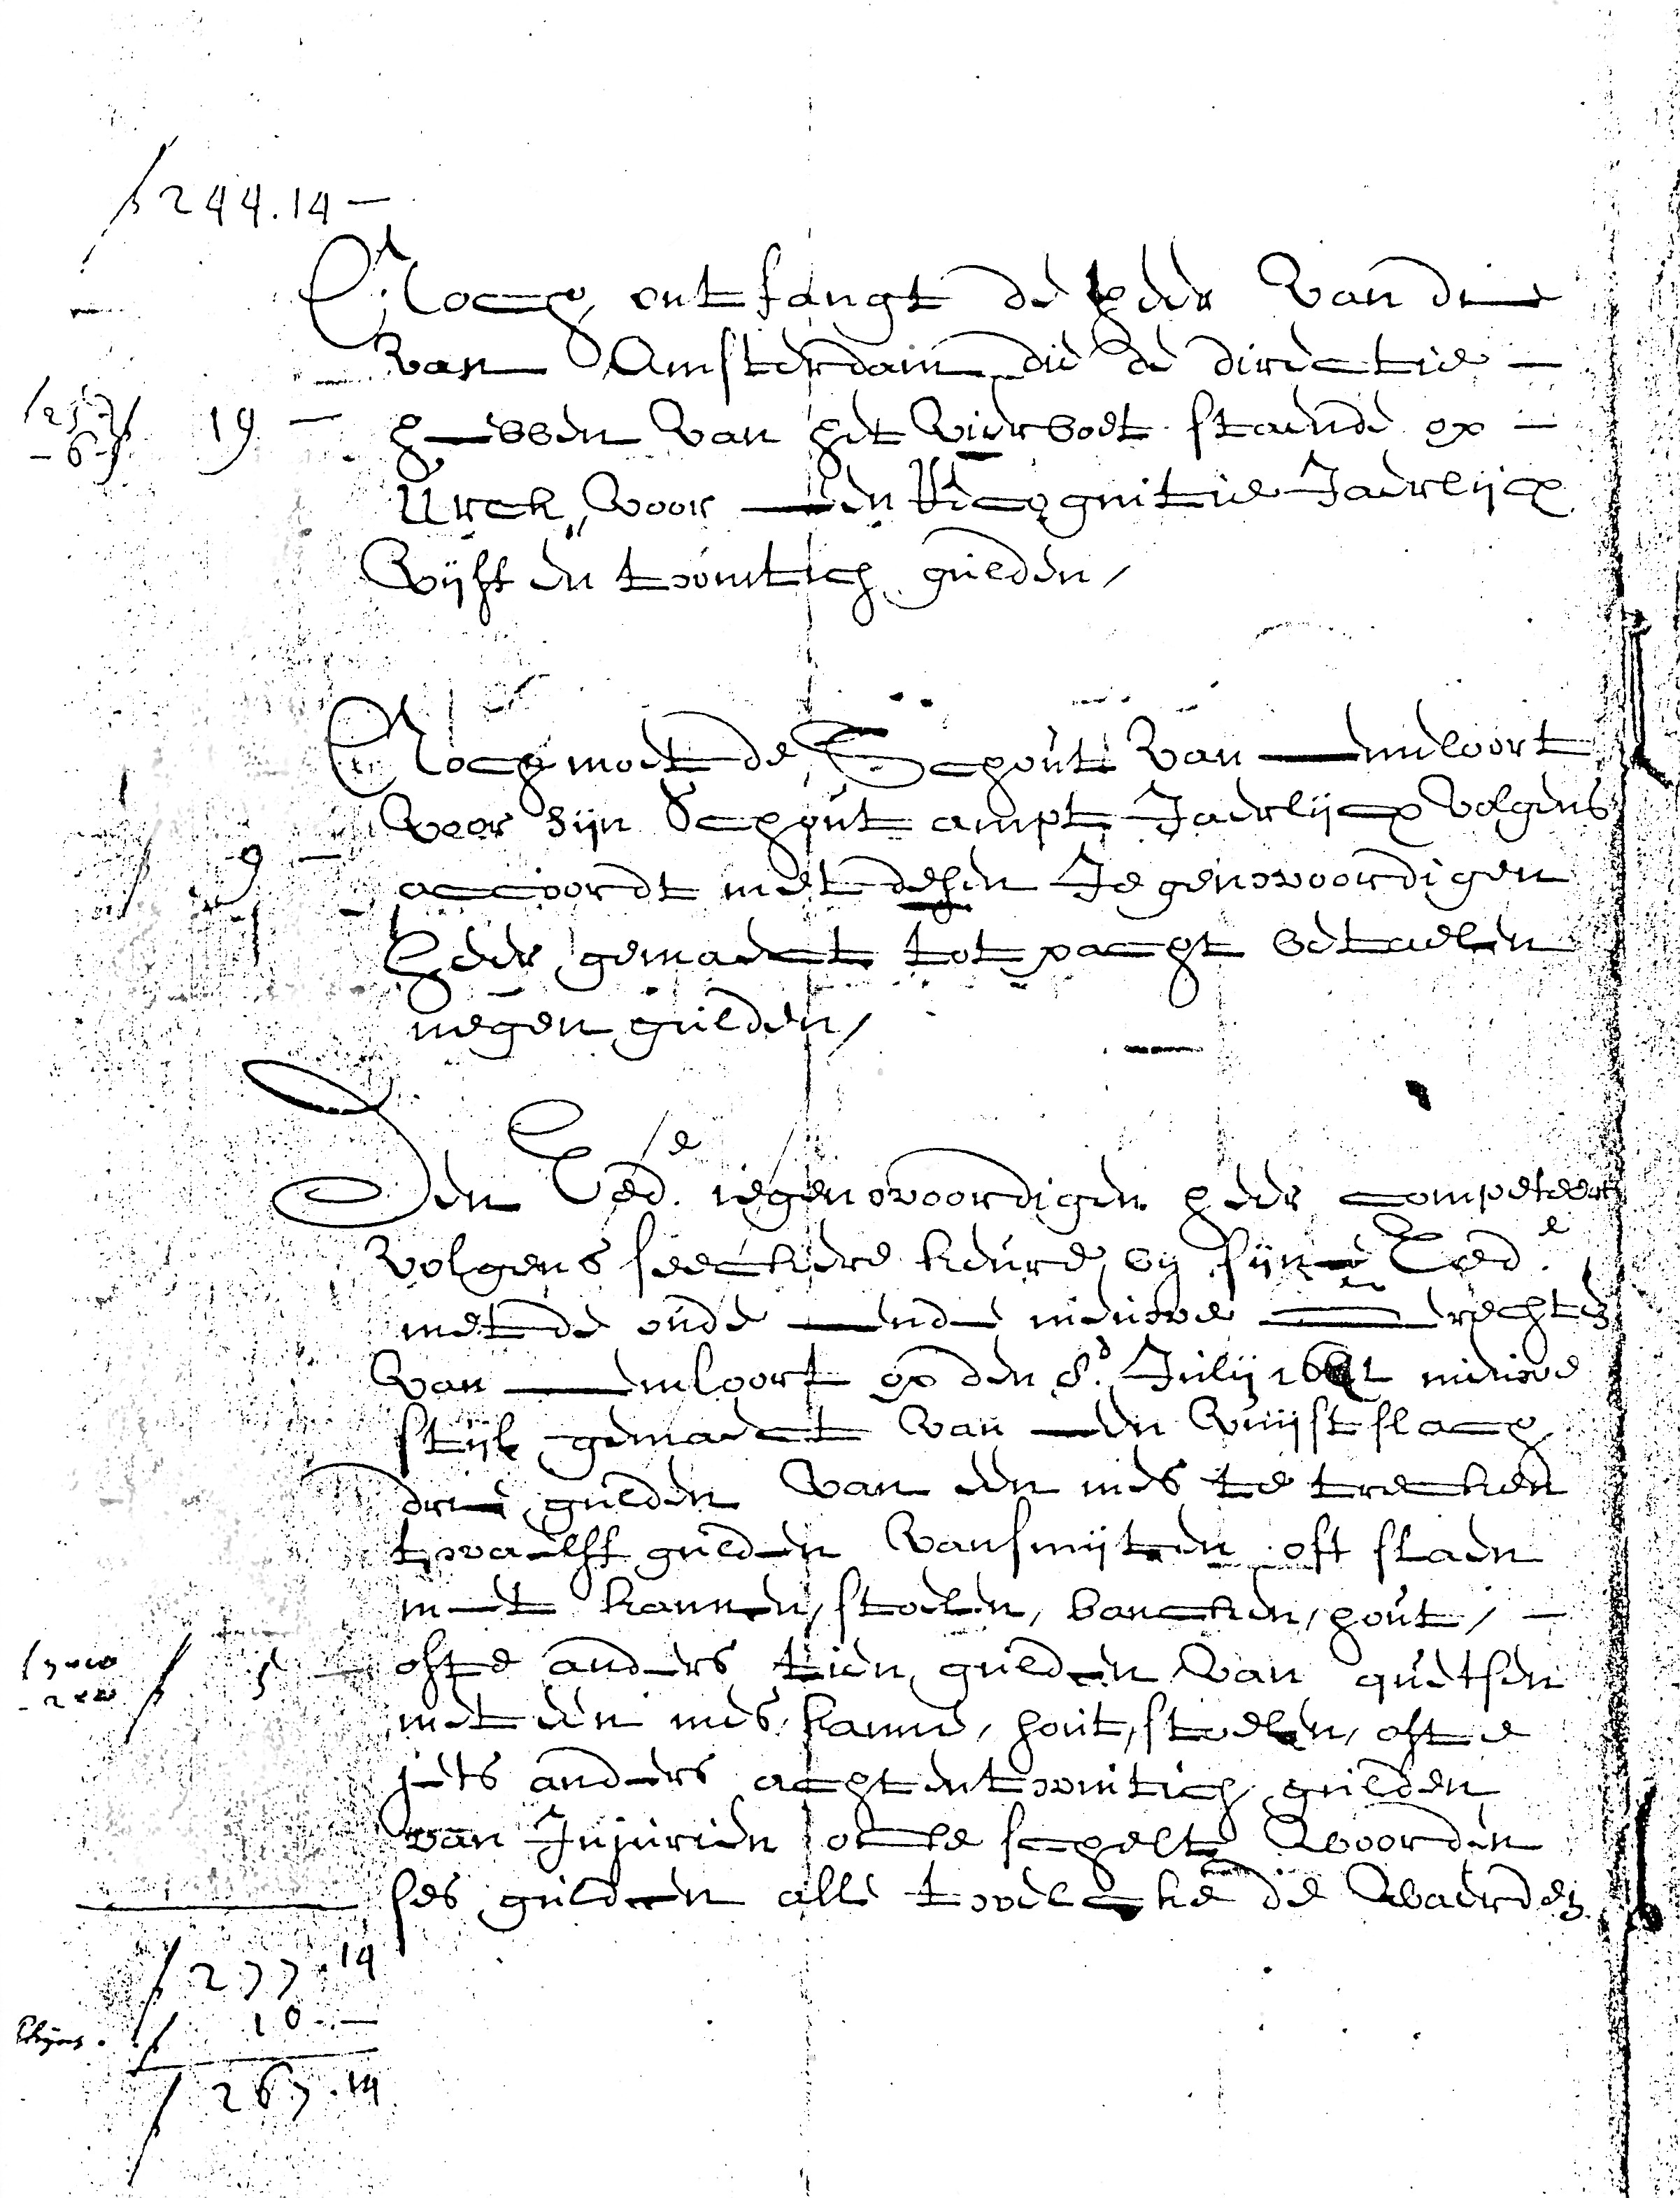 f 244.14 —
Noch ontfangt de heer van die
van Amsterdam die de directie —
19 — hebben van het vierboet staende op —
Urck, voor een Recognitie Jaerlijcx
vijff en twintich gulden /
Noch moet de Schout van Emeloort
voor zijn Schout ampt Jaerlijcx volgens
9 — accoordt met desen Jegenwoordigen
heer gemaect tot pacht betaelen
negen gulden /
Den Eed.e iegenwoordigen heer competeert
volgens seeckere keure by sijn Eed.e
met de oude ende nieuwe rechten
van Emeloort op den 8.e Julij nieuwe
stijl gemaect van een vuijstslach
drie gulden van een mes te trecken
twaelff gulden van smijten oft slaen
met kannen, stoelen, bancken, hout, —
f 5 — ofte anders tien gulden van quetsen
met een mes, kanne, hout, stoelen, ofte
iets anders achtentwintich gulden
van Injurien ofte schelt woorden
ses gulden alle twelcke de waerde
f 277.14
f 10 —
f 267.14